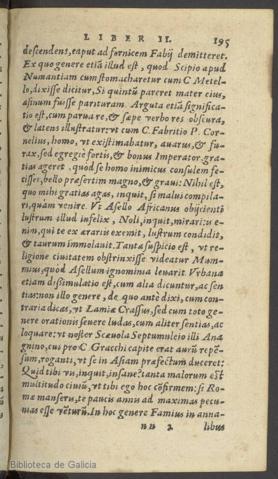 LIBER II. 195
descendens, caput ad fornicem Fabij demitteret.
Ex quo genere etiã illud est, quod Scipio apud
Numantiam cum stomacharetur cum C Metel-
lo, dixisse dicitur, Si quintũ pareret mater eius,
asinum fuisse parituram. Arguta etiã significa-
tio est, cum parua re, & sæpe verbo res obscura,
& latens illustratur: vt cum C. Fabritio P. Cor-
nelius, homo, vt existimabatur, auarus, & fu-
rax, sed egregiè fortis, & bonus Imperator gra-
tias ageret. quòd se homo inimicus consulem fe-
cisset, bello præsertim magno, & graui: Nihil est,
quo mihi gratias agas, inquit, si malui compila-
ri, quàm venire. Vt Asello Africanus obijcienti
lustrum illud infelix, Noli, inquit, mirari: is e-
nim, qui te ex ærarijs exemit, lustrum condidit,
& taurum immolauit. Tanta suspicio est, vt re-
ligione ciuitatem obstrinxisse videatur Mum-
mius, quòd Asellum ignominia leuarit Vrbana
etiam dissimulatio est, cum alia dicuntur, ac sen
tias: non illo genere, de quo antè dixi, cum con-
traria dicas, vt Lamiæ Crassus, sed cum toto ge-
nere orationis seuerè ludas, cum aliter sentias, ac
loquare: vt noster Scæuola Septumuleio illi Ana
gnino, cui pro C. Gracchi capite erat aurũ repẽ-
sum, roganti, vt se in Asiam præfectum duceret:
Quid tibi vis, inquit, insane? tanta malorum est
multitudo ciuiũ, vt tibi ego hoc cõfirmem: si Ro
mæ manseris, te paucis annis ad maximas pecu-
nias esse vẽturũ. In hoc genere Famius in anna-
nn 2 libus
Biblioteca de Galicia